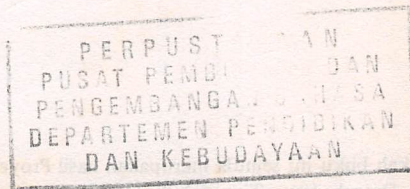 PERPUST AN
PUSAT PEMBI DAN
PENGEMBANGAN BAHASA
DEPARTEMEN PENDIDIKAN
DAN KEBUDAYAAN